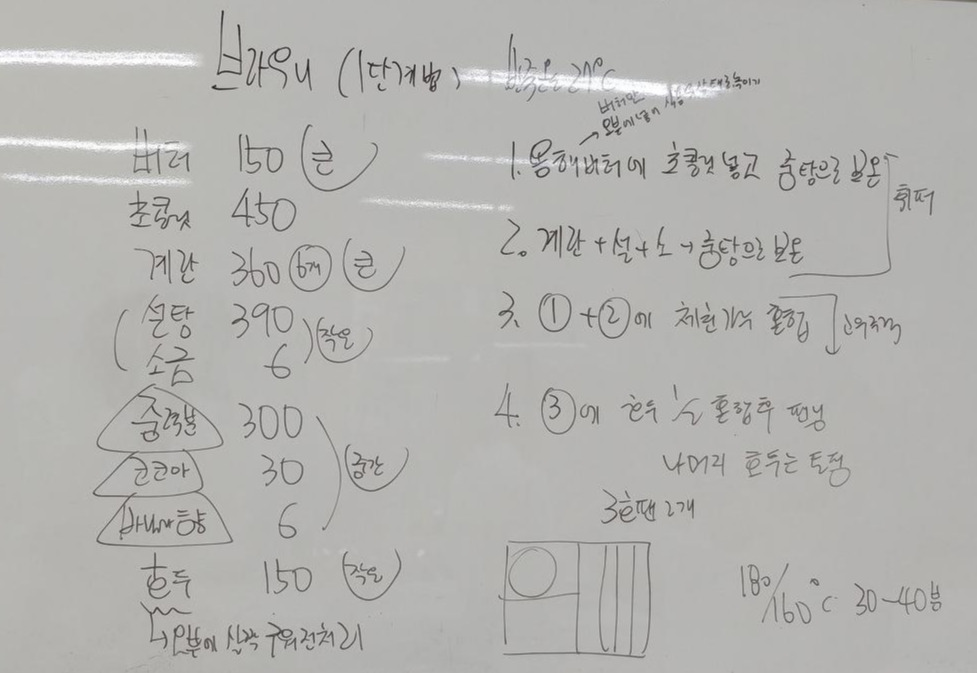 브라우니 (1단계법)
반죽온도 27℃
버터 150 (큰)
초콜릿 450
계란 360 (6개) (큰)
설탕 390
소금 6 (작은)
중력분 300
코코아 30 (중간)
바닐라향 6
호두 150 (작은)
↳ 오븐에 살짝 구워 전처리
버터만
오븐에 넣어
녹이기
1. 용해버터에 초콜릿 넣고 중탕으로 보온
2. 계란+설+소→중탕으로 보온
휘퍼
3. ①+②에 체친가루 혼합
고무주걱
4. ③에 호두 ½ 혼합후 팬닝
나머지 호두는 토핑
3호팬 2개
180/160℃ 30-40분